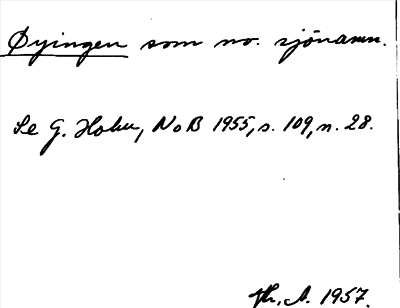 Øyingen som no. sjönamn.
Se G. Holm, NoB 1955, s. 109, n. 28.
A. 1957.